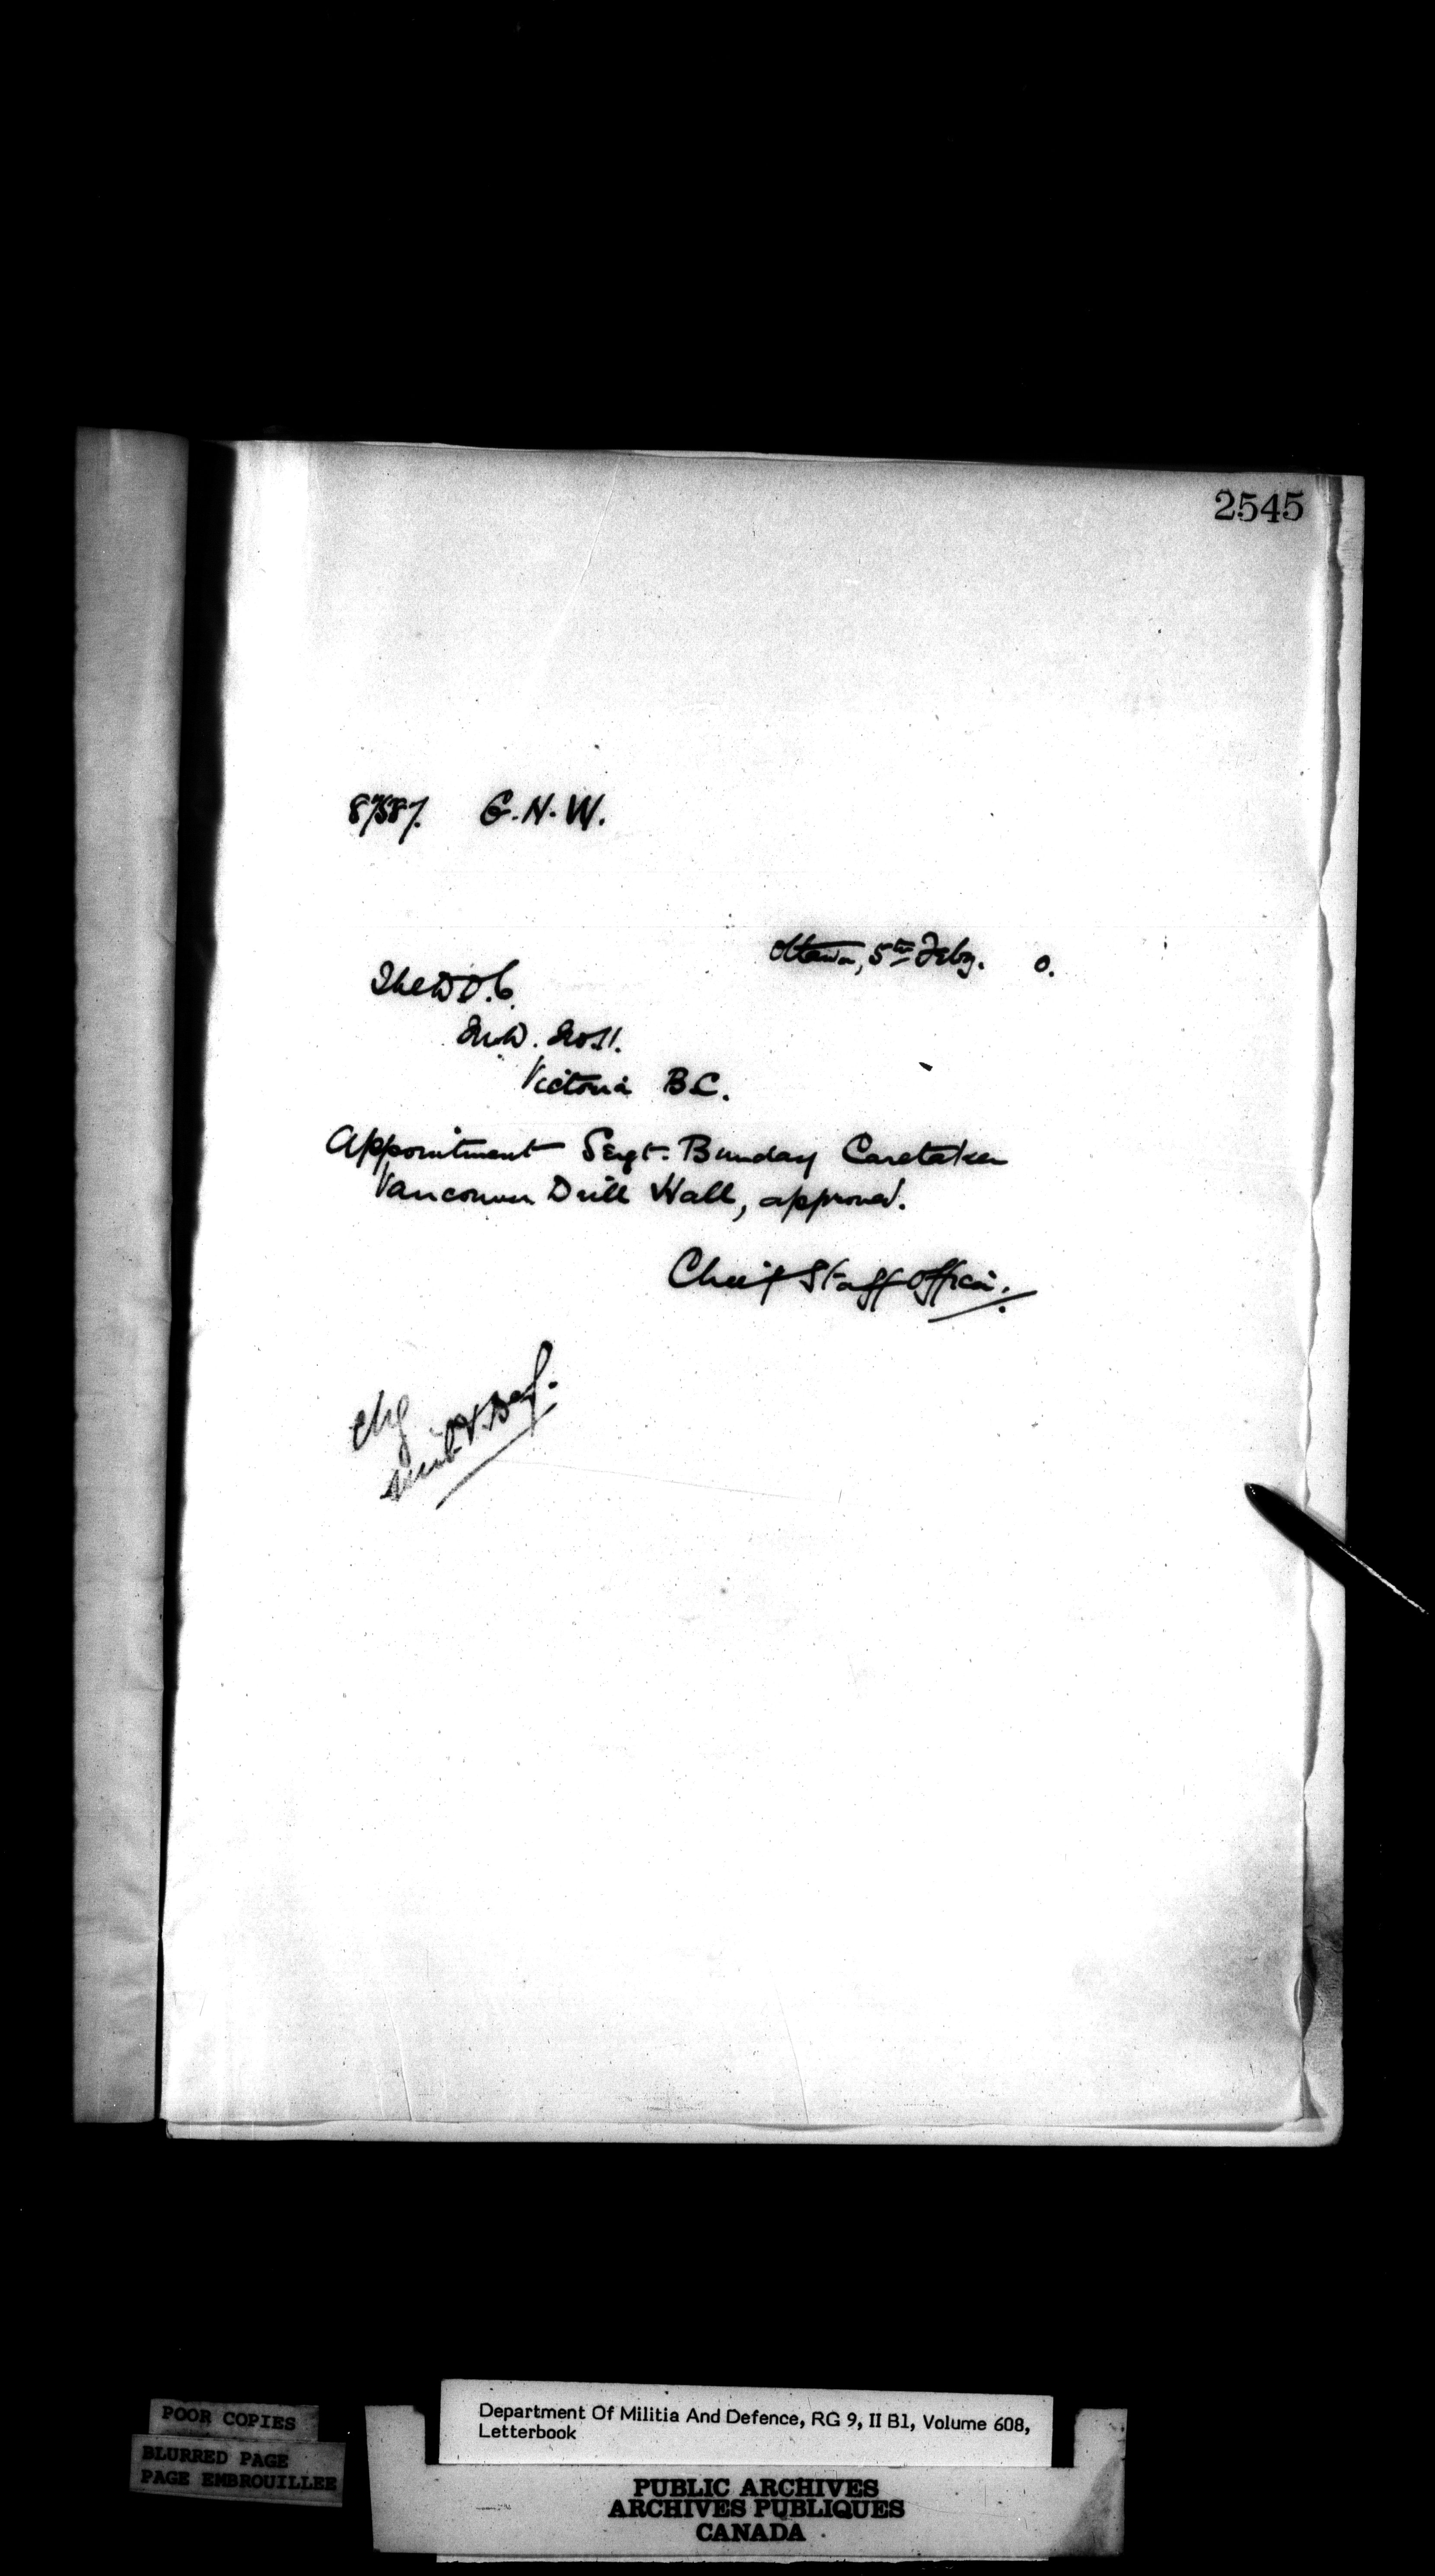 2545
87587. G.N.W.
Ottawa, 5th Feby. 0.
The D.O.C.
M.D. No 11.
Victoria B.C.
Appointment Sergt. Bunday Caretaker
Vancouver Drill Hall, approved.
Chief Staff Officer.
Chg
Mil & Def.
POOR COPIES
BLURRED PAGE
PAGE EMBROUILLEE
Department Of Militia And Defence, RG 9, II B1, Volume 608,
Letterbook
PUBLIC ARCHIVES
ARCHIVES PUBLIQUES
CANADA